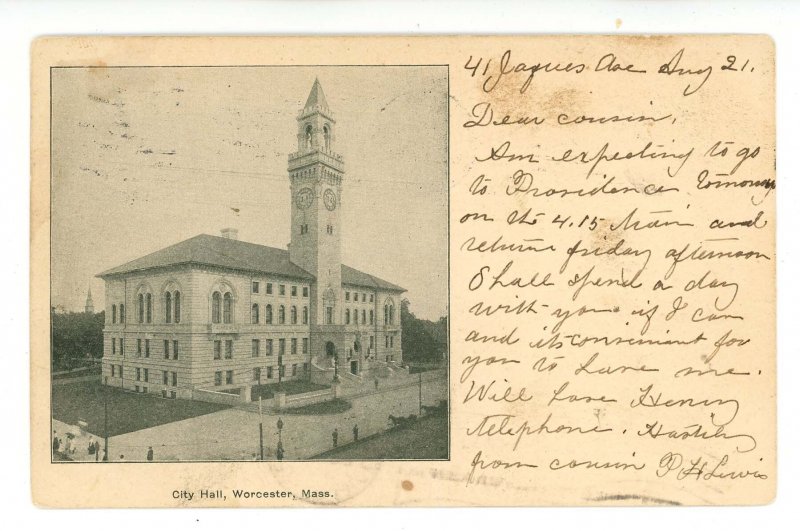 41 Jaques Ave Aug 21.
Dear cousin,
Am expecting to go
to Providence tomorrow
on the 4.15 train and
return friday afternoon
Shall spend a day
with you if I can
and its convenient for
you to have me.
Will have Henry
telephone. Hastily
from cousin P H Lewis
City Hall, Worcester, Mass.